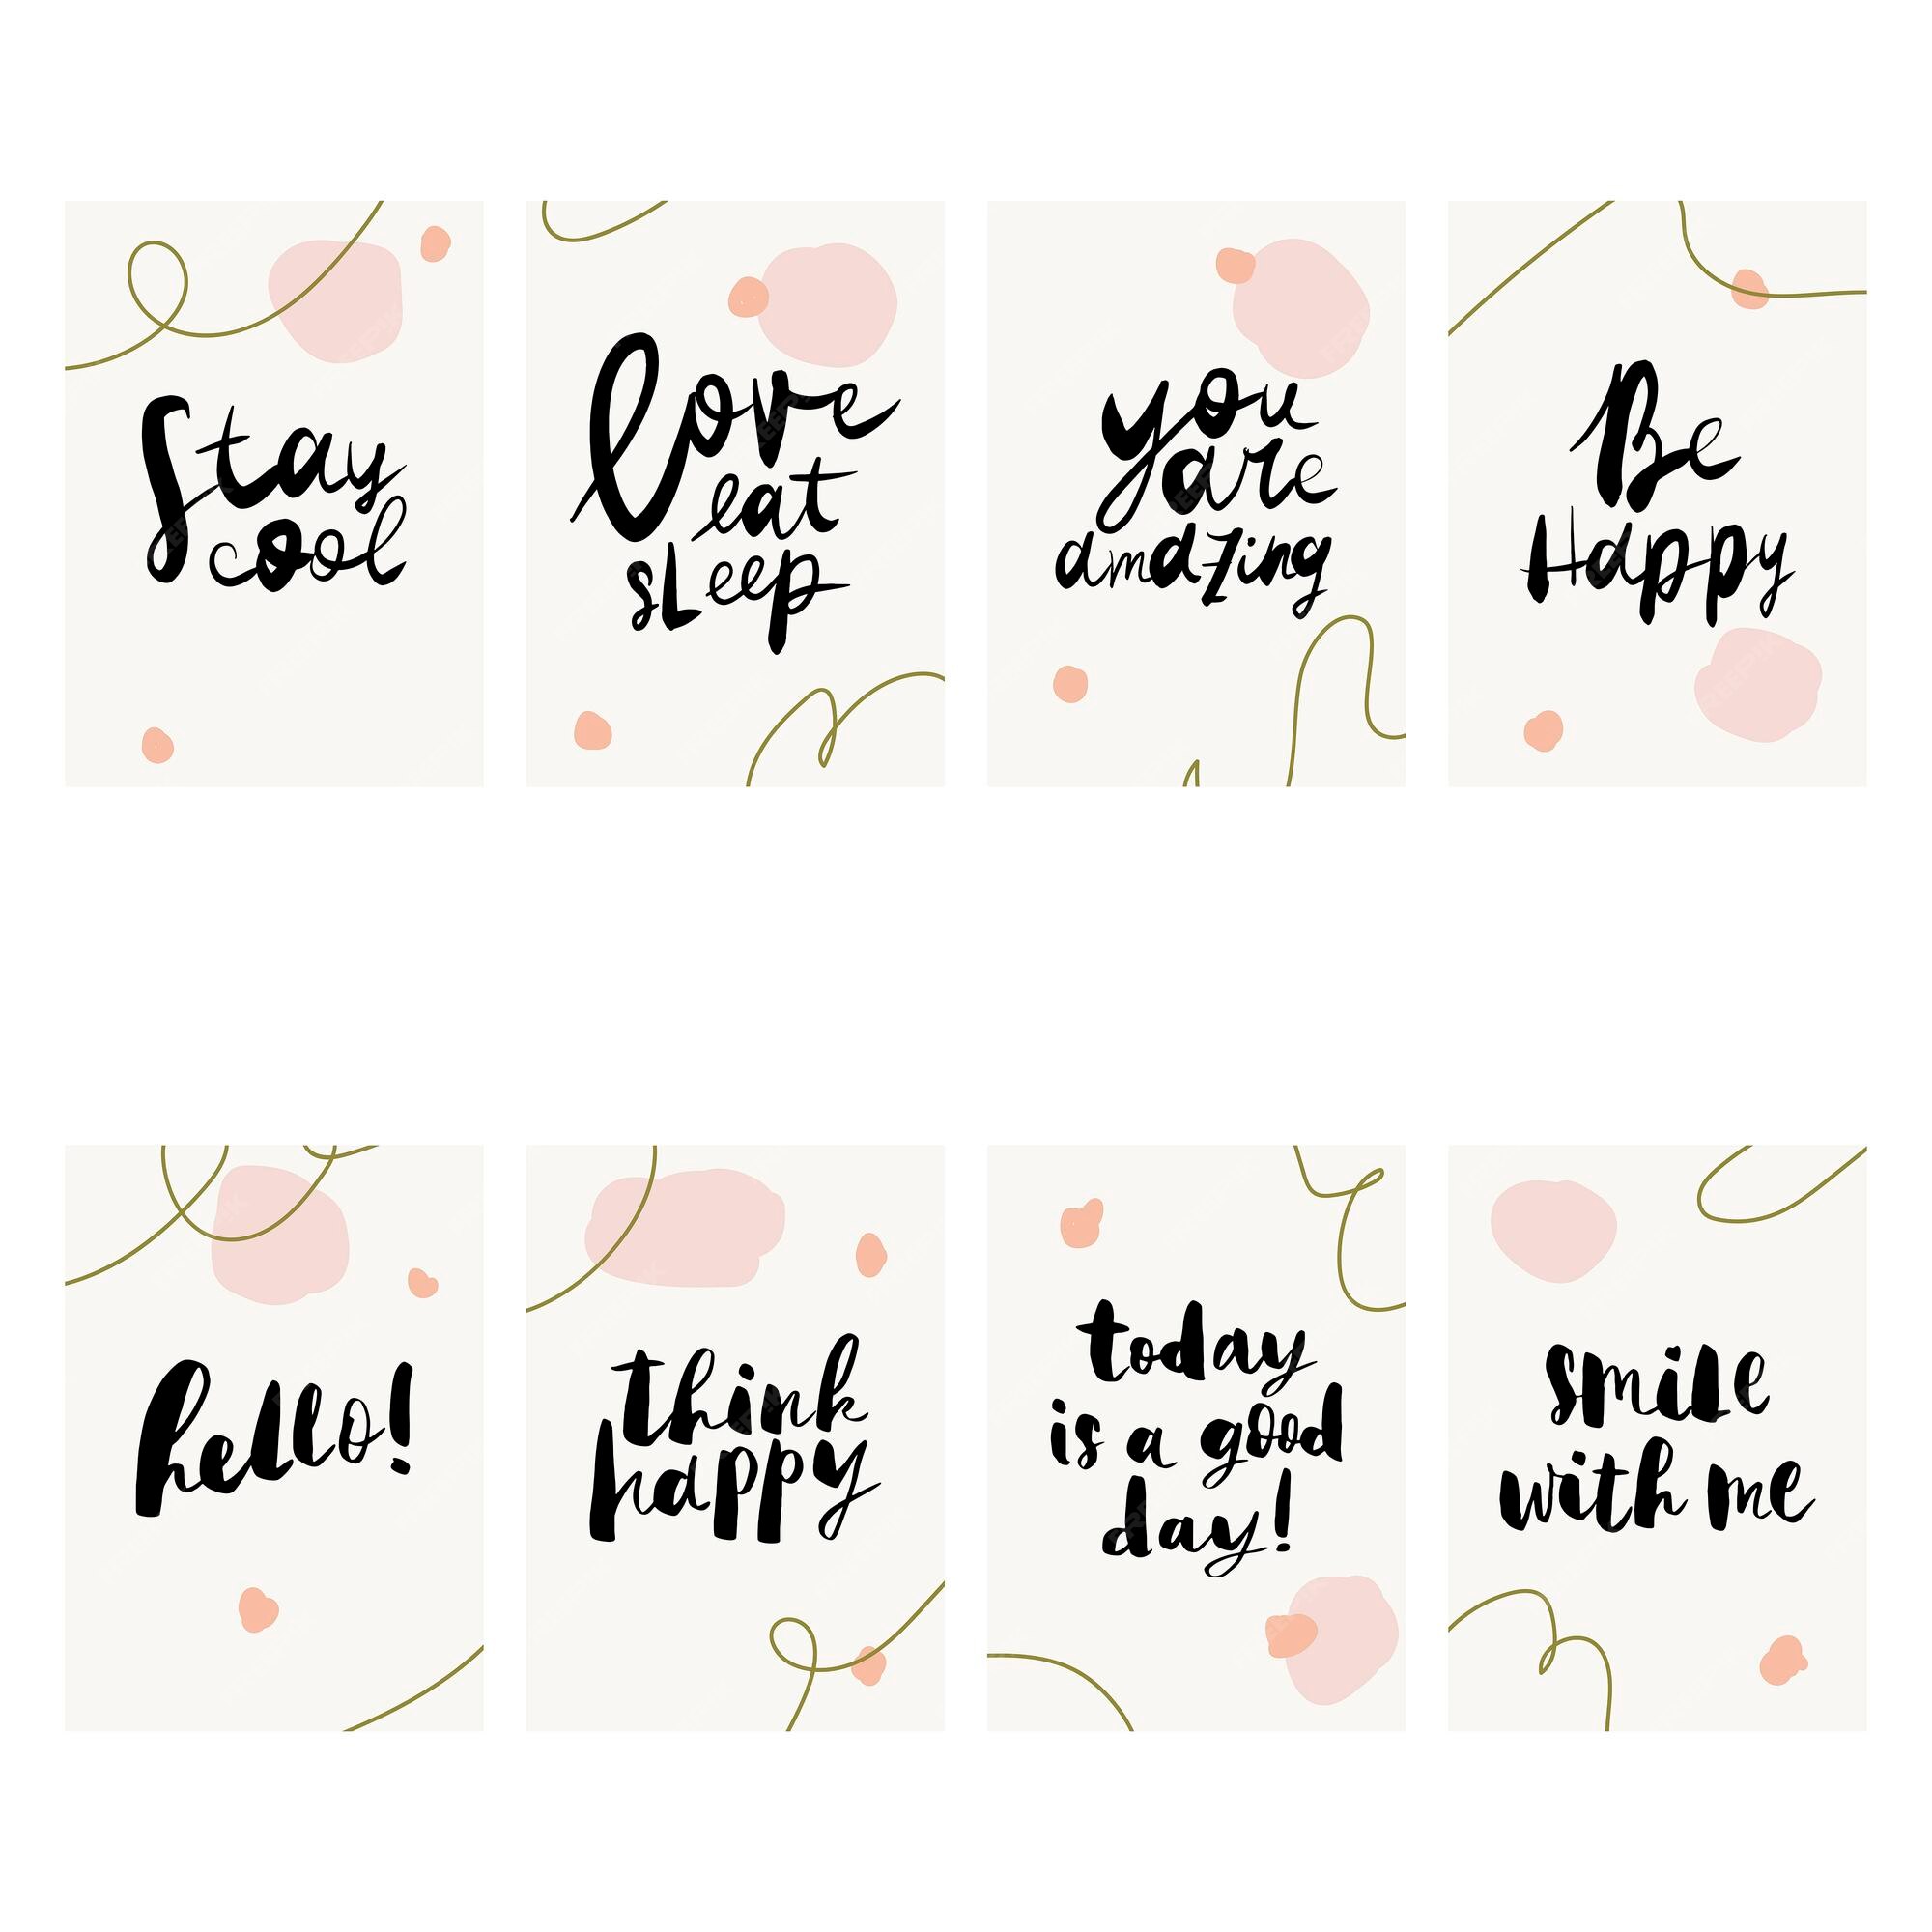 Stay
cool
love
eat
sLeep
you
are
amazing
Be
Happy
hello!
think
happy
today
is a good
day!
smile
with me